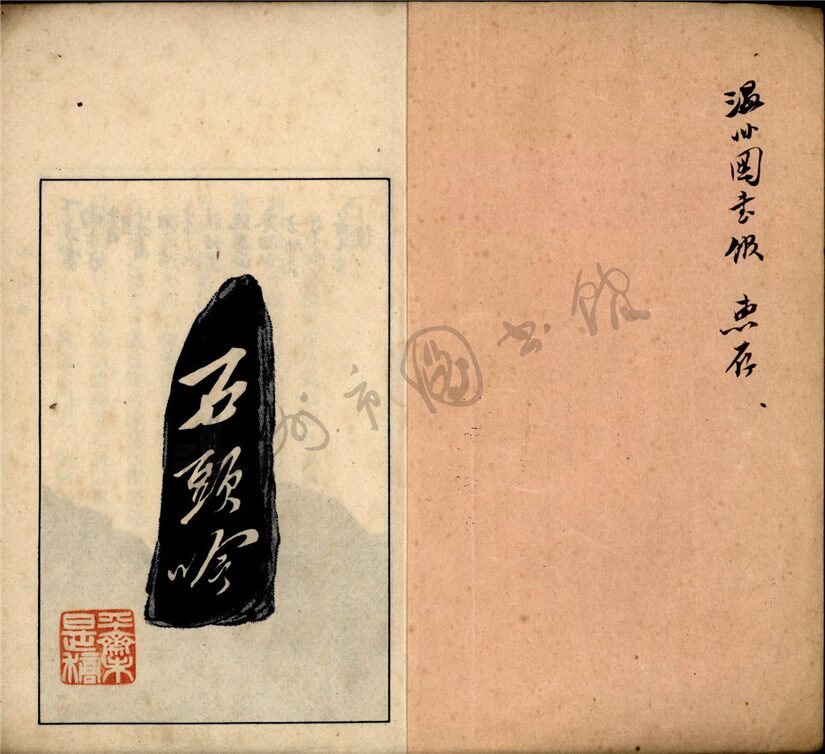 温州圖書館 惠存
石頭吟
州市圖书館